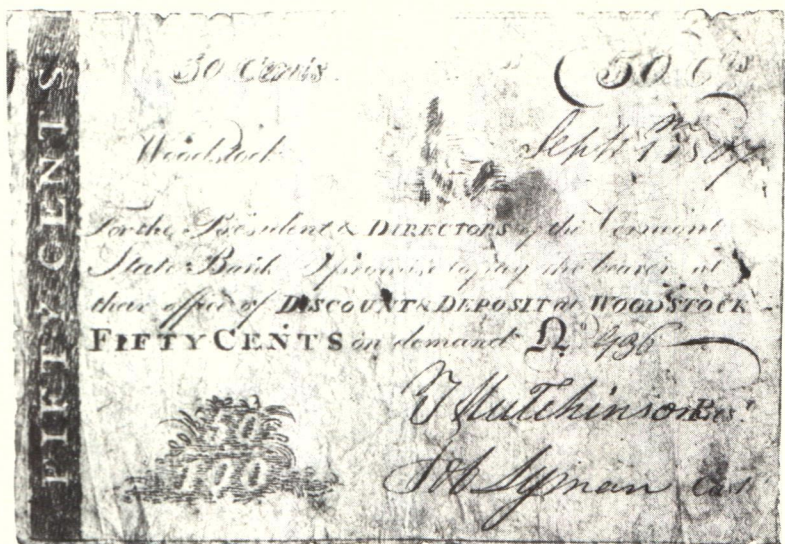 FIFTY CENTS
50 Cents 50 Cts
Woodstock Septr 1st 1807
For the President & DIRECTORS of the Vermont
State Bank I promise to pay the bearer at
their office of DISCOUNT & DEPOSIT at WOODSTOCK
FIFTY CENTS on demand No 436
T Hutchinson Prest
Job Lyman Cash
50
100